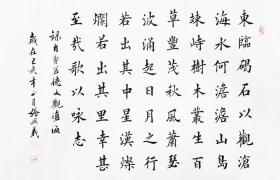 東臨碣石以觀滄
海水何澹澹山島
竦峙樹木叢生百
草豐茂秋風蕭瑟
波涌起日月之行
若出其中星漢燦
爛若出其里幸甚
至哉歌以詠志
錄自曹孟德文觀滄海
歲在己亥年正月